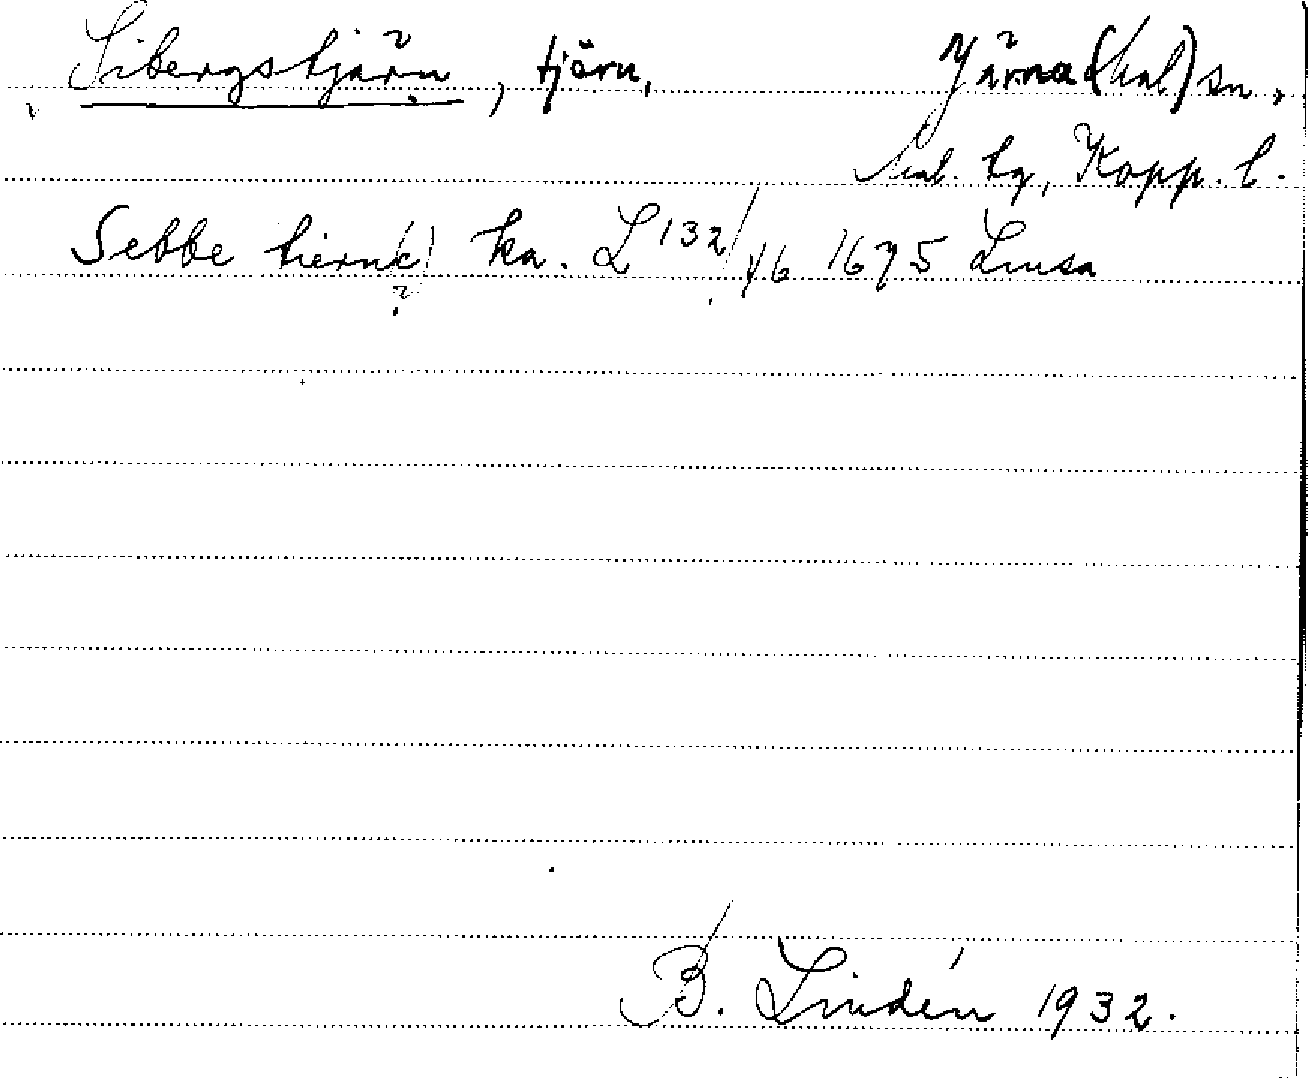 Sibergstjärn, tjärn, Järna (Nal) sn,
Nal. hg, Kopp. l.
Sebbe tiernk ka. L 132/46 1675 Linsa
?
B. Lindén 1932.